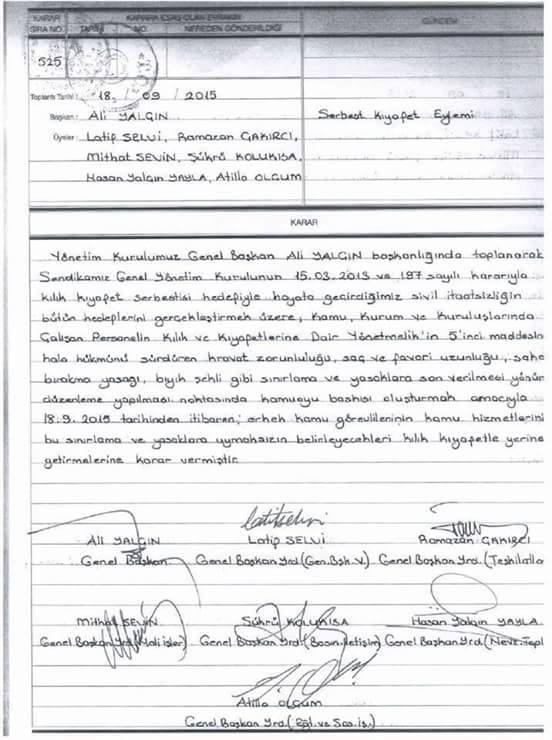 KARAR KARARA ESAS OLAN EVRAKIN GÜNDEM
SIRA NO. TARİHİ NO. NEREDEN GÖNDERİLDİĞİ
525
Toplantı Tarihi : 18 / 09 / 2015
Başkan : Ali YALÇIN Serbest Kıyafet Eylemi
Üyeler : Latif SELVİ, Ramazan ÇAKIRCI,
Mithat SEVİN, Şükrü KOLUKISA,
Hasan Yalçın YAYLA, Atilla OLÇUM
KARAR
Yönetim Kurulumuz Genel Başkan Ali YALÇIN başkanlığında toplanarak
Sendikamız Genel Yönetim Kurulunun 15.03.2013 ve 197 sayılı kararıyla
kılık kıyafet serbestisi hedefiyle hayata geçirdiğimiz sivil itaatsizliğin
bütün hedeflerini gerçekleştirmek üzere, Kamu, Kurum ve Kuruluşlarında
Çalışan Personelin Kılık ve Kıyafetlerine Dair Yönetmelik'in 5'inci
hala hükmünü sürdüren kravat zorunluluğu, saç ve favori uzunluğu, sakal
bırakma yasağı, bıyık şekli gibi sınırlama ve yasaklara son verilmesi
düzenleme yapılması noktasında kamuoyu baskısı oluşturmak amacıyla
18.9.2015 tarihinden itibaren; erkek kamu görevlilerinin kamu hizmetlerini
bu sınırlama ve yasaklara uymaksızın belirleyecekleri kılık kıyafetle yerine
getirmelerine karar vermiştir.
Ali YALÇIN Latif SELVİ Ramazan ÇAKIRCI
Genel Başkan Genel Başkan Yrd.(Gen.Bşk.V.) Genel Başkan Yrd.(Teşkilatla
Mithat SEVİN Şükrü KOLUKISA Hasan Yalçın YAYLA
Genel Başkan Yrd.(Mali işler) Genel Başkan Yrd.(Basın.İletişim) Genel Başkan Yrd.(Mev.ve Topl
Atilla OLÇUM
Genel Başkan Yrd.(Eğt.ve Sos.iş.)